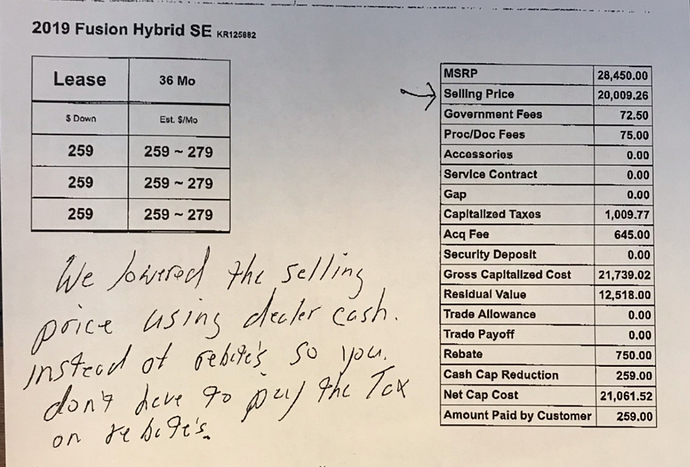 2019 Fusion Hybrid SE KR125882
Lease 36 Mo
$ Down Est. $/Mo
259 259 ~ 279
259 259 ~ 279
259 259 ~ 279
MSRP 28,450.00
Selling Price 20,009.26
Government Fees 72.50
Proc/Doc Fees 75.00
Accessories 0.00
Service Contract 0.00
Gap 0.00
Capitalized Taxes 1,009.77
Acq Fee 645.00
Security Deposit 0.00
Gross Capitalized Cost 21,739.02
Residual Value 12,518.00
Trade Allowance 0.00
Trade Payoff 0.00
Rebate 750.00
Cash Cap Reduction 259.00
Net Cap Cost 21,061.52
Amount Paid by Customer 259.00
We lowered the selling
price using dealer cash.
instead of rebite's so you.
don't have to pay the Tax
on rebite's.